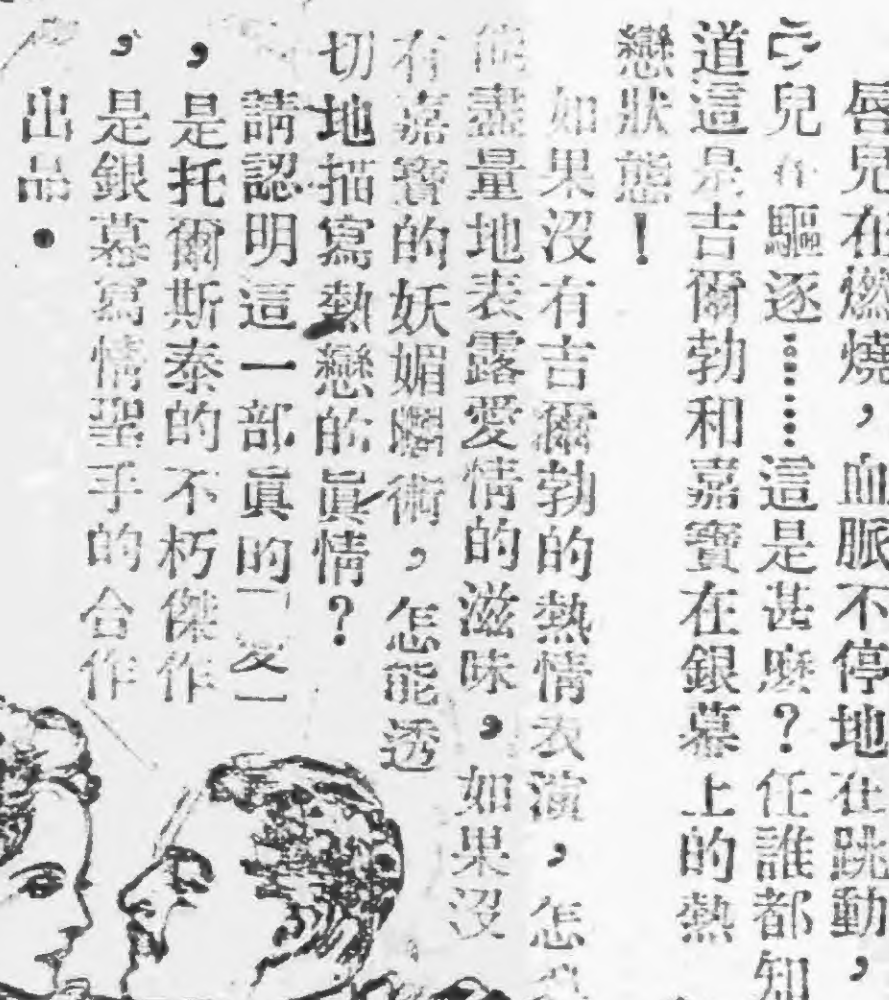 唇兒在燃燒，血脈不停地在跳動，
心兒在驅逐……這是甚麽？任誰都知
道這是吉爾勃和嘉寶在銀幕上的熱
戀狀態！
如果沒有吉爾勃的熱情表演，怎
能盡量地表露愛情的滋味，如果沒
有嘉寶的妖媚術，怎能透
切地描寫熱戀的眞情？
請認明這一部眞的「愛」
，是托爾斯泰的不朽傑作
，是銀幕寫情聖手的合作
出品．